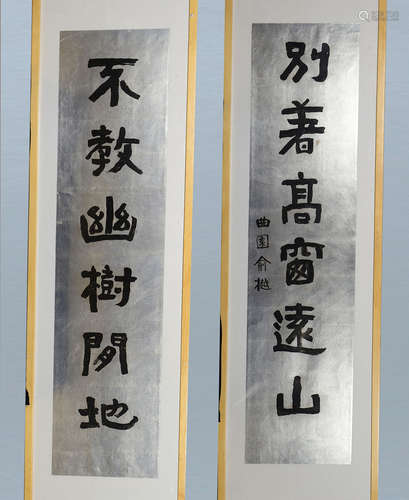 別著高窗遠山
曲園俞樾
不教幽樹閒地